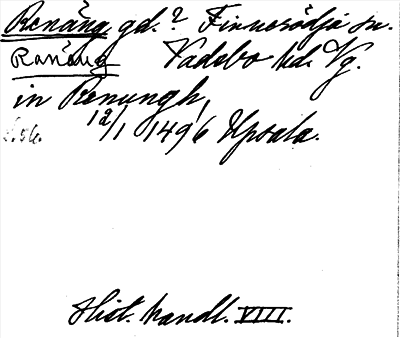 Renäng gd.? Finnerödja sn.
Ranäng Vadsbo hd. Vg.
in Renungh,
12/1 1496 Upsala.
Hist. handl. VIII.